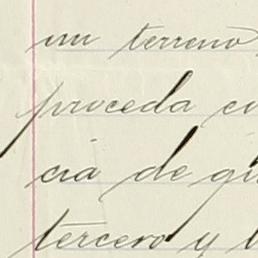 un terreno
proceda co
cia de gu
tercero y l